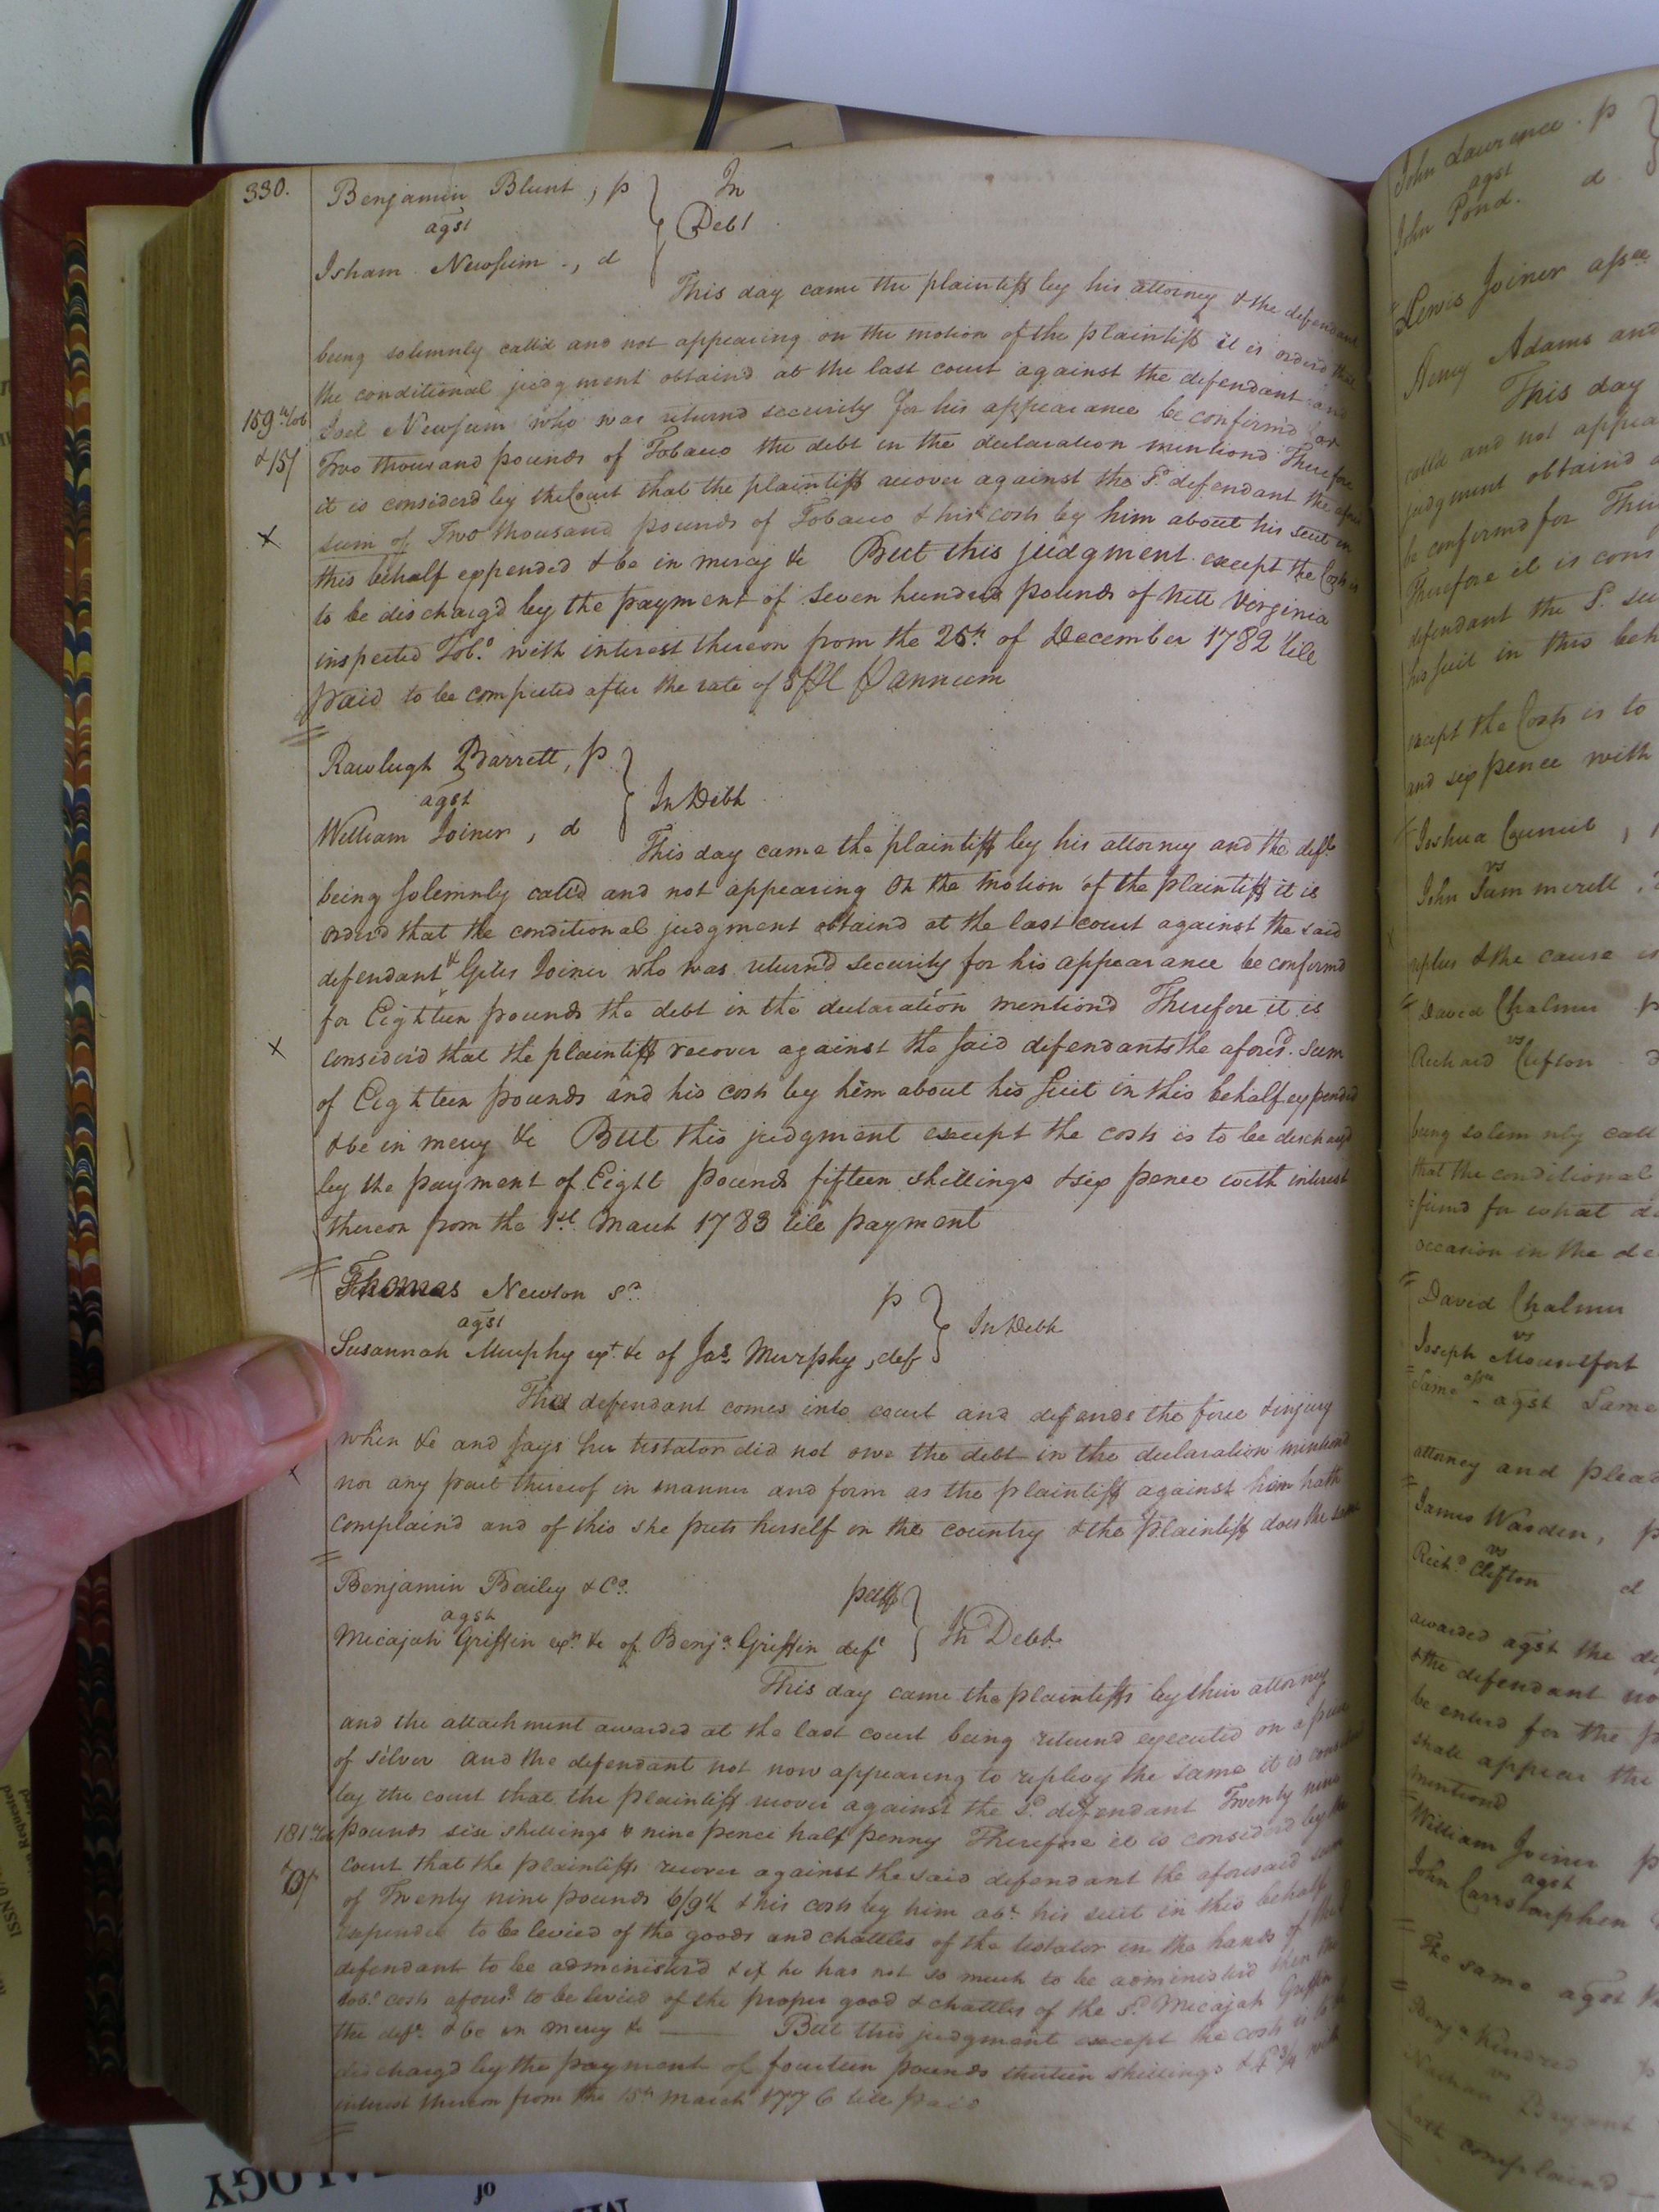 330.
Benjamin Blunt, p
agst
Isham Newsum., d
In
Debt
This day came the plaintiff by his attorney & the defendant
being solemnly call'd and not appearing on the motion of the plaintiff it is orderd that
the conditional judgment obtaind at the last court against the defendant and
159 lb tob
& 15/
Joel Newsum who was returnd security for his appearance be confirm'd for
Two thousand pounds of Tobacco the debt in the declaration mentiond Therefore
it is considerd by the Court that the plaintiff recover against the Sd. defendant the
sum of Two thousand pounds of Tobacco & his costs by him about his suit in
this behalf expended & be in mercy &c But this judgment except the Costs is
to be discharg'd by the payment of seven hundred pounds of nett Virginia
inspected Tobo. with interest thereon from the 25th of December 1782 till
paid to be computed after the rate of 5 PCt P annum
Rawleigh Barrett, p
agst
William Joiner, d
In Debt
This day came the plaintiff by his attorney and the deft
being solemnly calld and not appearing On the motion of the plaintiff it is
orderd that the conditional judgment obtaind at the last court against the said
defendant & Giles Joiner who was return'd security for his appearance be confirmd
for Eighteen pounds the debt in the declaration mention'd Therefore it is
consider'd that the plaintiff recover against the said defendants the aforesd. sum
of Eighteen pounds and his costs by him about his suit in this behalf expended
& be in mercy &c But this judgment except the costs is to be discharg'd
by the payment of Eight pounds fifteen shillings & six pence with interest
thereon from the 1st March 1783 till payment
Thomas Newton Sr. p
agst
Susannah Murphy ext. &c of Jas. Murphy, def
In Debt
The defendant comes into court and defends the force & injury
when &c and says her testator did not owe the debt in the declaration mentiond
nor any part thereof in manner and form as the plaintiff against him hath
complain'd and of this she puts herself on the country & the plaintiff does the same
Benjamin Bailey & Co. paff
agst
Micajah Griffin exr. &c of Benja. Griffin deft
In Debt
This day came the plaintiffs by their attorney
and the attachment awarded at the last court being returnd executed on a piece
of silver and the defendant not now appearing to replevy the same it is considerd
by the court that the plaintiff recover against the Sd. defendant Twenty nine
181 lb tob
pounds six shillings & nine pence half penny Therefore it is considerd by the
court that the plaintiffs recover against the said defendant the aforesaid sum
of Twenty nine pounds 6/9½ & his costs by him abt. his suit in this behalf
expended to be levied of the goods and chattles of the testator in the hands of the
defendant to be administerd & if he has not so much to be administerd then the
tobo. costs aforesd. to be levied of the proper good & chattles of the Sd. Micajah Griffin
the deft. & be in mercy &c — But this judgment except the costs is to be
dischargd by the payment of fourteen pounds thirteen shillings & 4¾ with
interest thereon from the 15th March 1776 till paid
John Lawrence. p
agst
John Pond. d
Lewis Joiner assee
Henry Adams and
This day
calld and not appea
judgment obtaind a
be confirmd for Thir
Therefore it is cons
defendant the Sd. su
his suit in this beh
except the Costs is to
and six pence with
Joshua Council,
vs
John Summerell,
replev & the cause is
David Chalmer p
vs
Richard Clifton d
being solemnly call
that the conditional
firmd for what d
occasion in the de
David Chalmer
vs
Joseph Mountfort
Same agst Same
attorney and plead
James Warden, p
vs
Richd. Clifton d
awarded agst the de
& the defendant no
be enterd for the p
shall appear the
mentiond
William Joiner p
agst
John Carstarphen
The same agst
Benja Kindred p
vs
Nathan Bryant
hath complaind